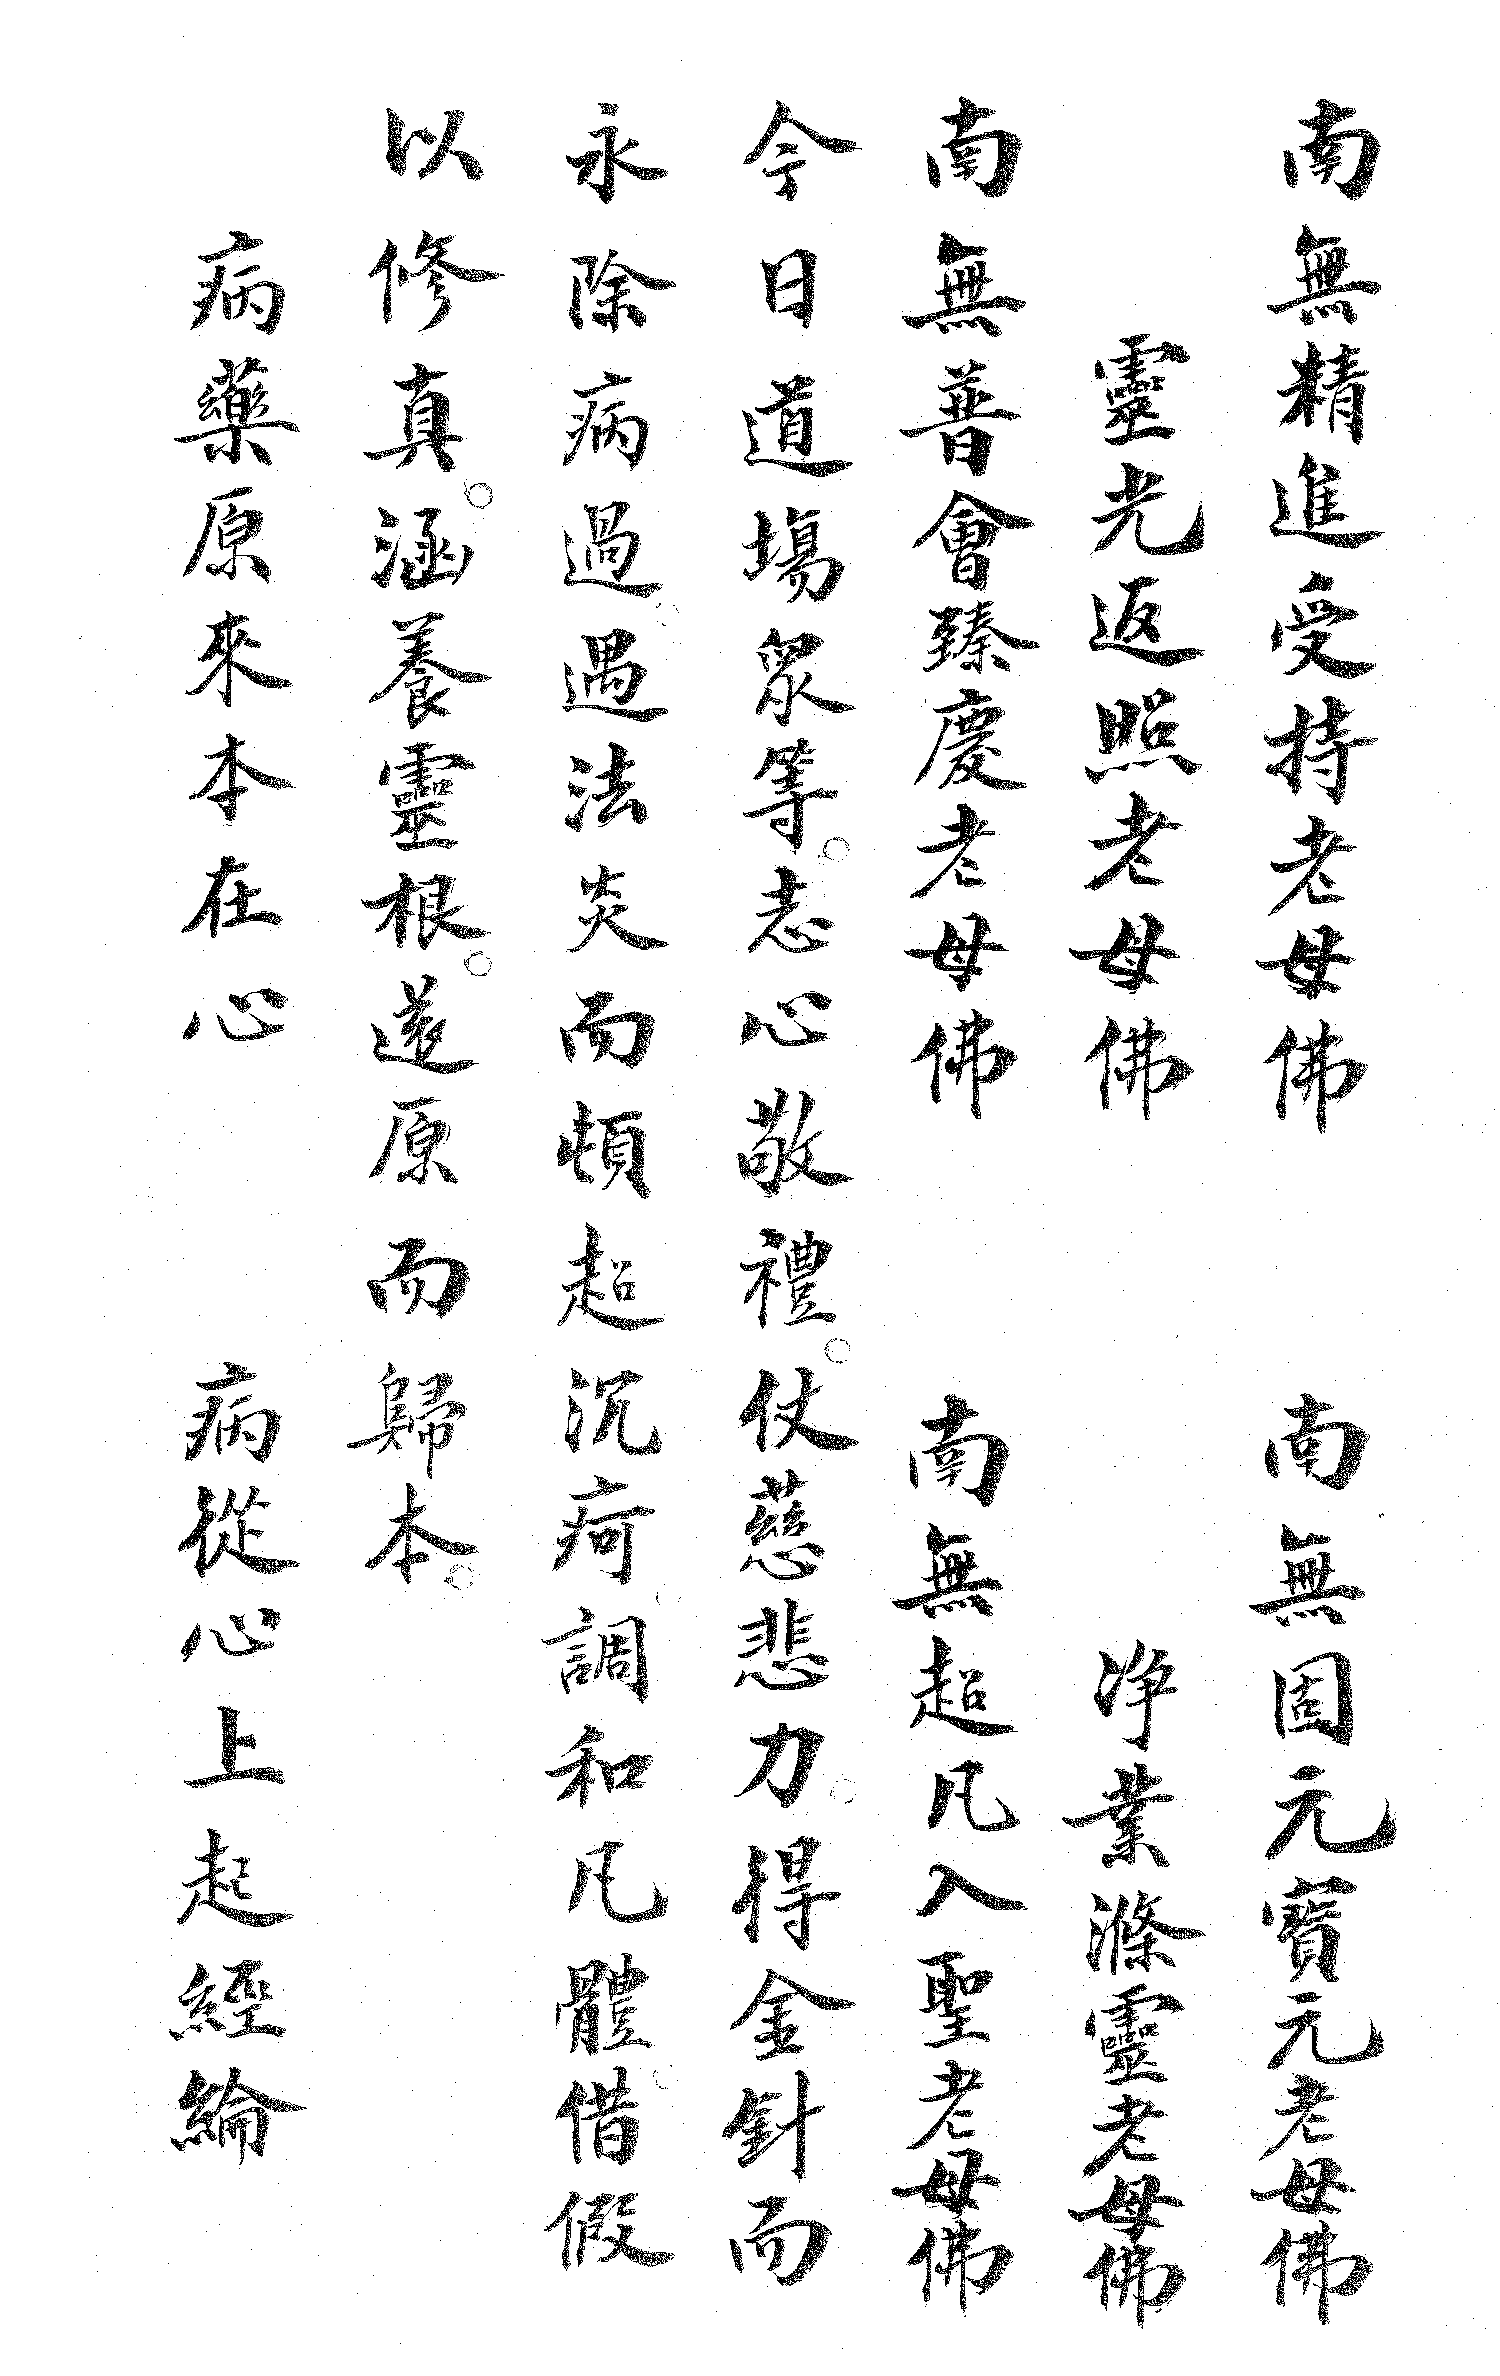 南無精進受持老母佛　南無固元寶元老母佛
靈光返照老母佛　淨業滌靈老母佛
南無普會臻慶老母佛　南無超凡入聖老母佛
今日道場眾等。志心敬禮。仗慈悲力。得金針而
永除病過。遇法炎而頓超沉疴。調和凡體。借假
以修真。涵養靈根。返原而歸本。
病藥原來本在心　病從心上起經綸